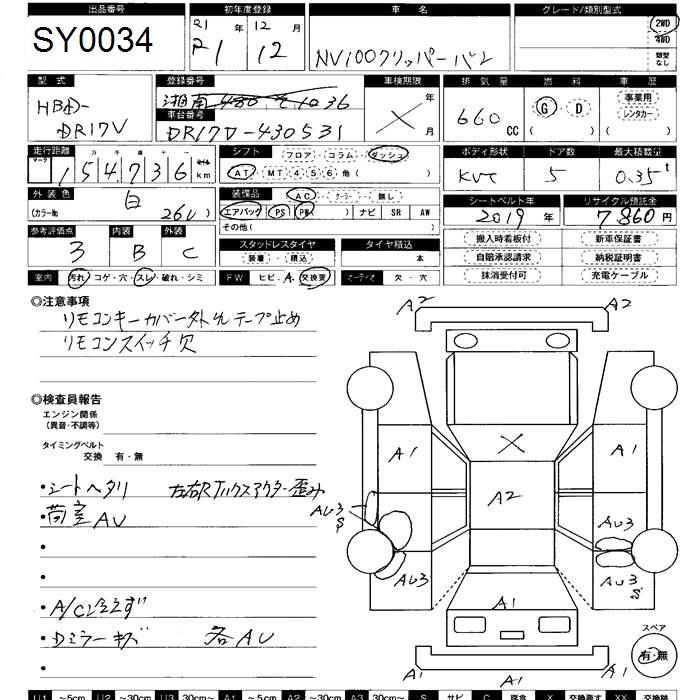 出品番号 初年度登録 車名 グレード/類別型式
SY0034
R1 年 12 月
R1 12
NV100クリッパーバン
2WD
4WD
類型なし
型式 登録番号 車検期限 排気量 燃料 車歴
HBD-
DR17V
湘南480
車台番号
DR17D-430531
年
X
月
660 CC
G・D
( )
事業用
レンタカー
( )
走行距離 シフト ボディ形状 ドア数 最大積載量
マーク 十 万 千 百 十 一 マイル
154736 km
フロア・コラム・ダッシュ
AT・MT 4 5 6 他( )
5 0.35t
外装色 装備品 シートベルト年 リサイクル預託金
白
(カラーNo 26U )
AC・クーラー・無し
エアバック PS PW ( ) ナビ SR AW
その他( )
2019 年 7,860 円
参考評価点 内装 外装
3 B C
スタッドレスタイヤ タイヤ積込
装着・積込 本
搬入時看板付 新車保証書
自賠承認請求 納税証明書
抹消受付可 充電ケーブル
室内 汚れ・コゲ・穴・スレ・破れ・シミ FW ヒビ・A・交換要 オーディオ 欠・穴
◎注意事項
リモコンキーカバー外れテープ止め
リモコンスイッチ欠
◎検査員報告
エンジン関係
(異音・不調等)
タイミングベルト
交換 有・無
・シートヘタリ
・荷室AU
・
・
・A/C冷えず
・Dミラーキズ 各AU
・
A2 A2
X
A1 A1
A2
AU3
S
AU3
AU3
AU3
S
A1
A1 A1 A1
スペア
有・無
U1 ~5cm U2 ~30cm U3 30cm~ A1 ~5cm A2 ~30cm A3 30cm~ S サビ C 腐食 X 交換要す XX 交換跡